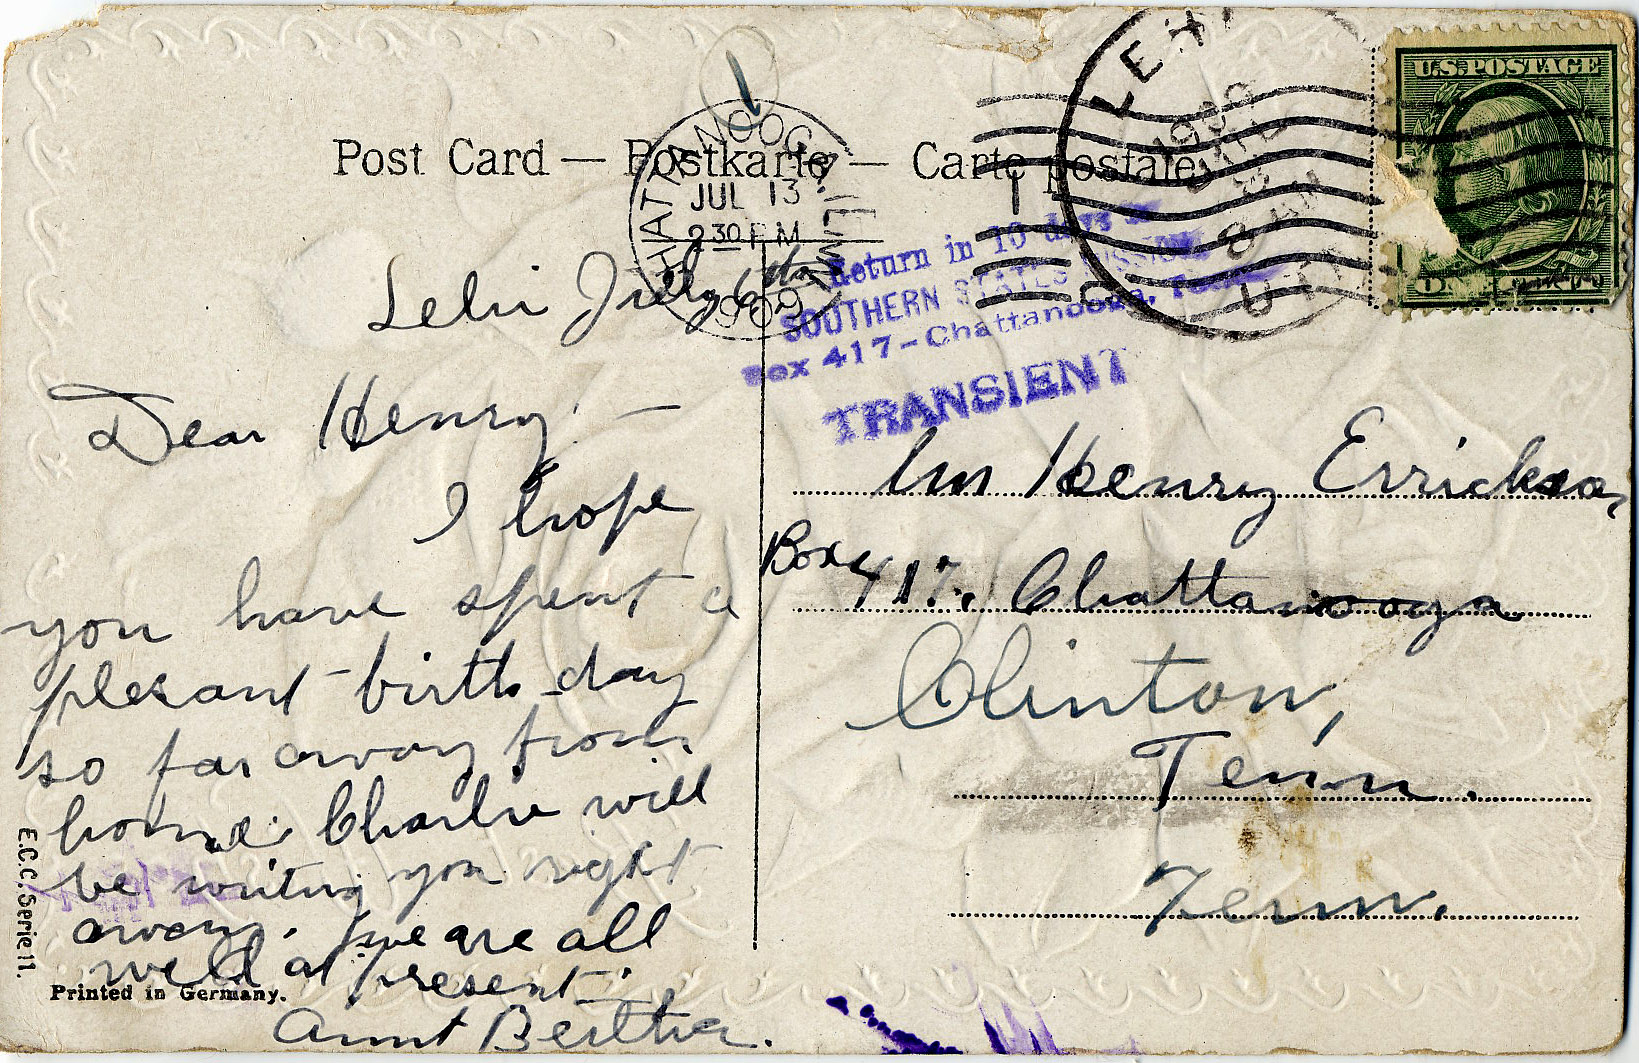 U.S. POSTAGE
LEHI
1909
JUL
8
8 AM
UTAH
Post Card — Postkarte — Carte postale
CHATTANOOGA, TENN.
JUL 13
2 30 PM
1909
Return in 10 days to
SOUTHERN STATES MISSION
Box 417-Chattanooga, Tenn.
TRANSIENT
Lehi July 6
Dear Henry: —
I hope
you have spent a
plesant birth day
so far away from
home. Charlie will
be writing you right
away. we are all
well at present.
Aunt Bertha.
Mr Henry Errickson,
Box 417. Chattanooga
Clinton,
Tenn.
Tenn.
E.C.C. Serie 11.
Printed in Germany.